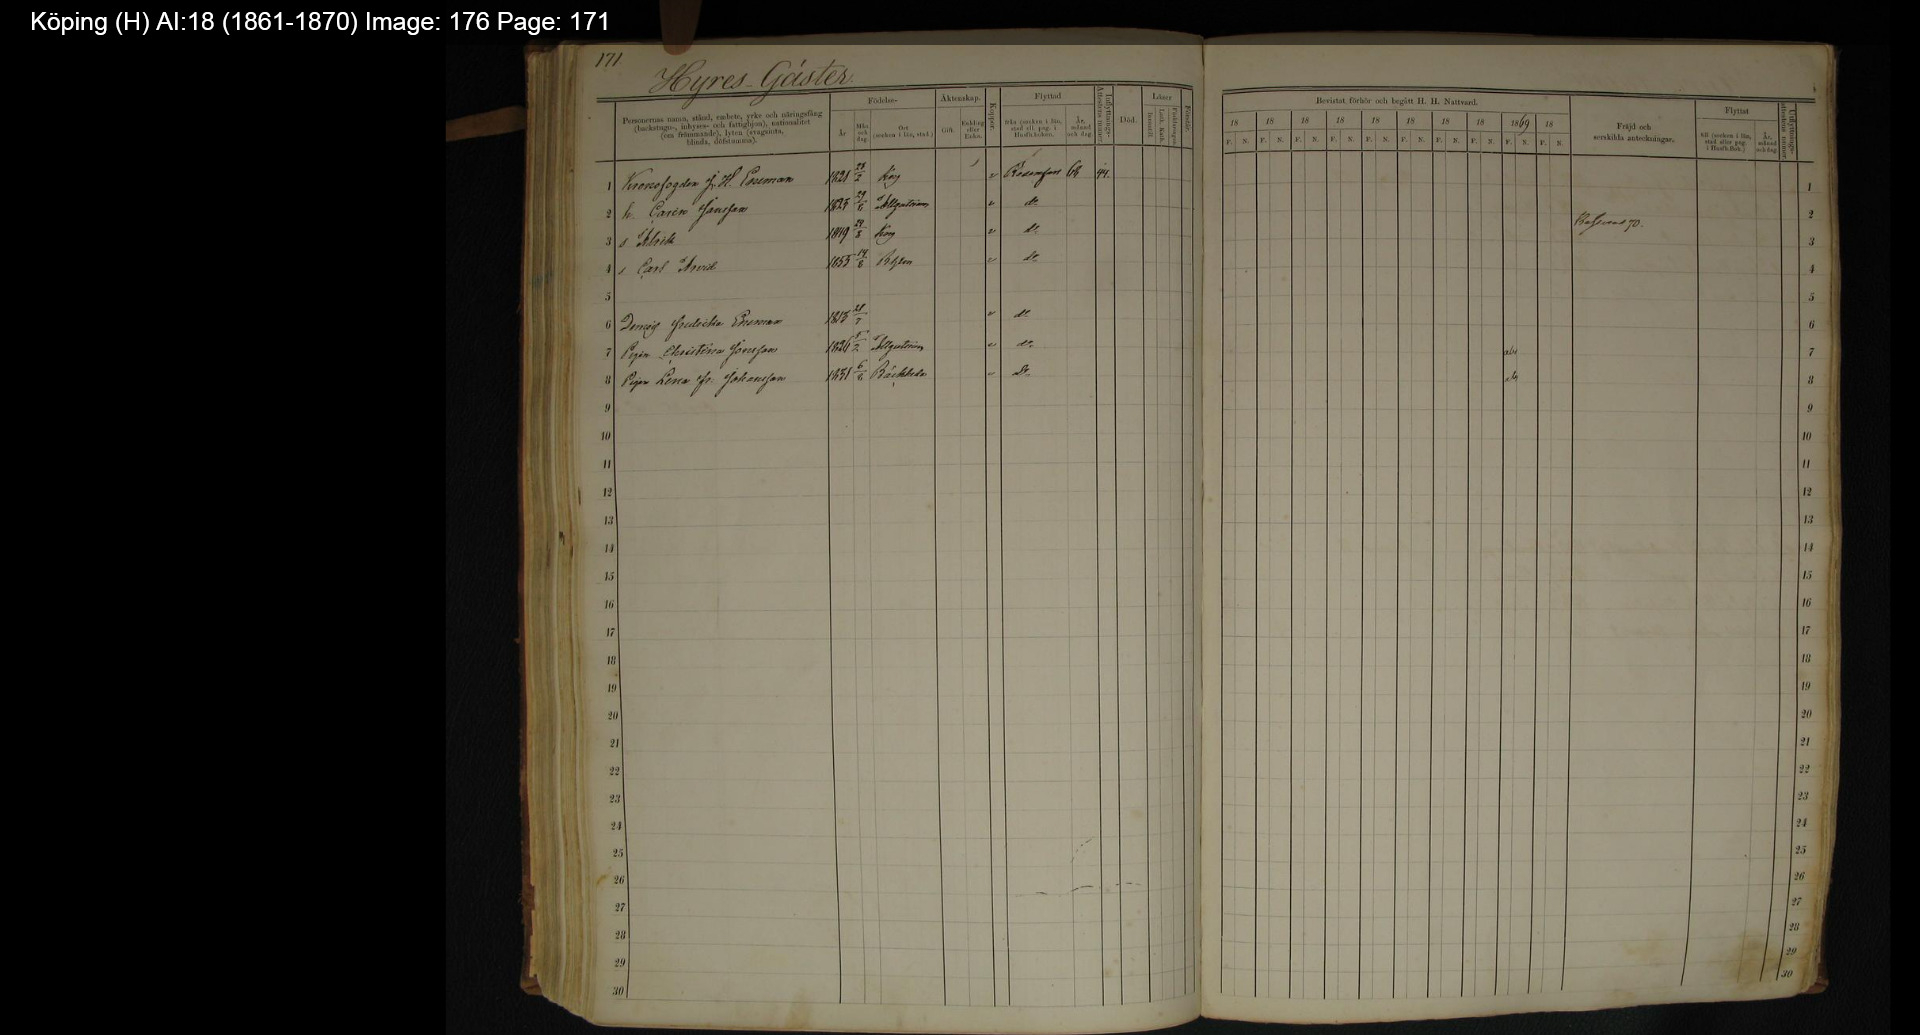 Köping (H) AI:18 (1861-1870) Image: 176 Page: 171
171
Hyres-Gäster
Personernas namn, stånd, embete, yrke och näringsfång
(backstugo-, inhyses- och fattighjon), nationalitet
(om främmande), lyten (svagsinta,
blinda, döfstumma).
Födelse-
År
Mån. och dag.
Ort
(socken i län, stad.)
Äktenskap.
Gift
Enkling eller Enka.
Koppor.
Flyttad
från (socken i län, stad ell. pag. i Husförhsboken.
År, månad och dag
Inflyttnings-Attestens numer.
Död.
Läser
Innantill
Luth. Kath.
Förstår.
Bevistat förhör och begått H. H. Nattvard.
18 18 18 18 18 18 18 18 1869 18
F. N. F. N. F. N. F. N. F. N. F. N. F. N. F. N. F. N. F. N.
Fräjd och
serskilda anteckningar.
Flyttat
till (socken i län,
stad eller pag.
i Husfh.Bok.)
År, månad och dag
Utflyttnings-attestens numer
1 Kronofogden J. H. Eneman 1821 Kög v 68 44 1
2 h. Carin Jansson 1825 29/6 v do 2
3 s Alrik 1849 Kög v do 3
4 s Carl Arvid 1853 14/6 v do 4
5 5
6 Fredrika Eneman 1815 v do 6
7 Pigan Christina Jonsson 1826 v do 7
8 Pigan Lena Johansson 1831 6/6 Bäckebo do 8
9 9
10 10
11 11
12 12
13 13
14 14
15 15
16 16
17 17
18 18
19 19
20 20
21 21
22 22
23 23
24 24
25 25
26 26
27 27
28 28
29 29
30 30